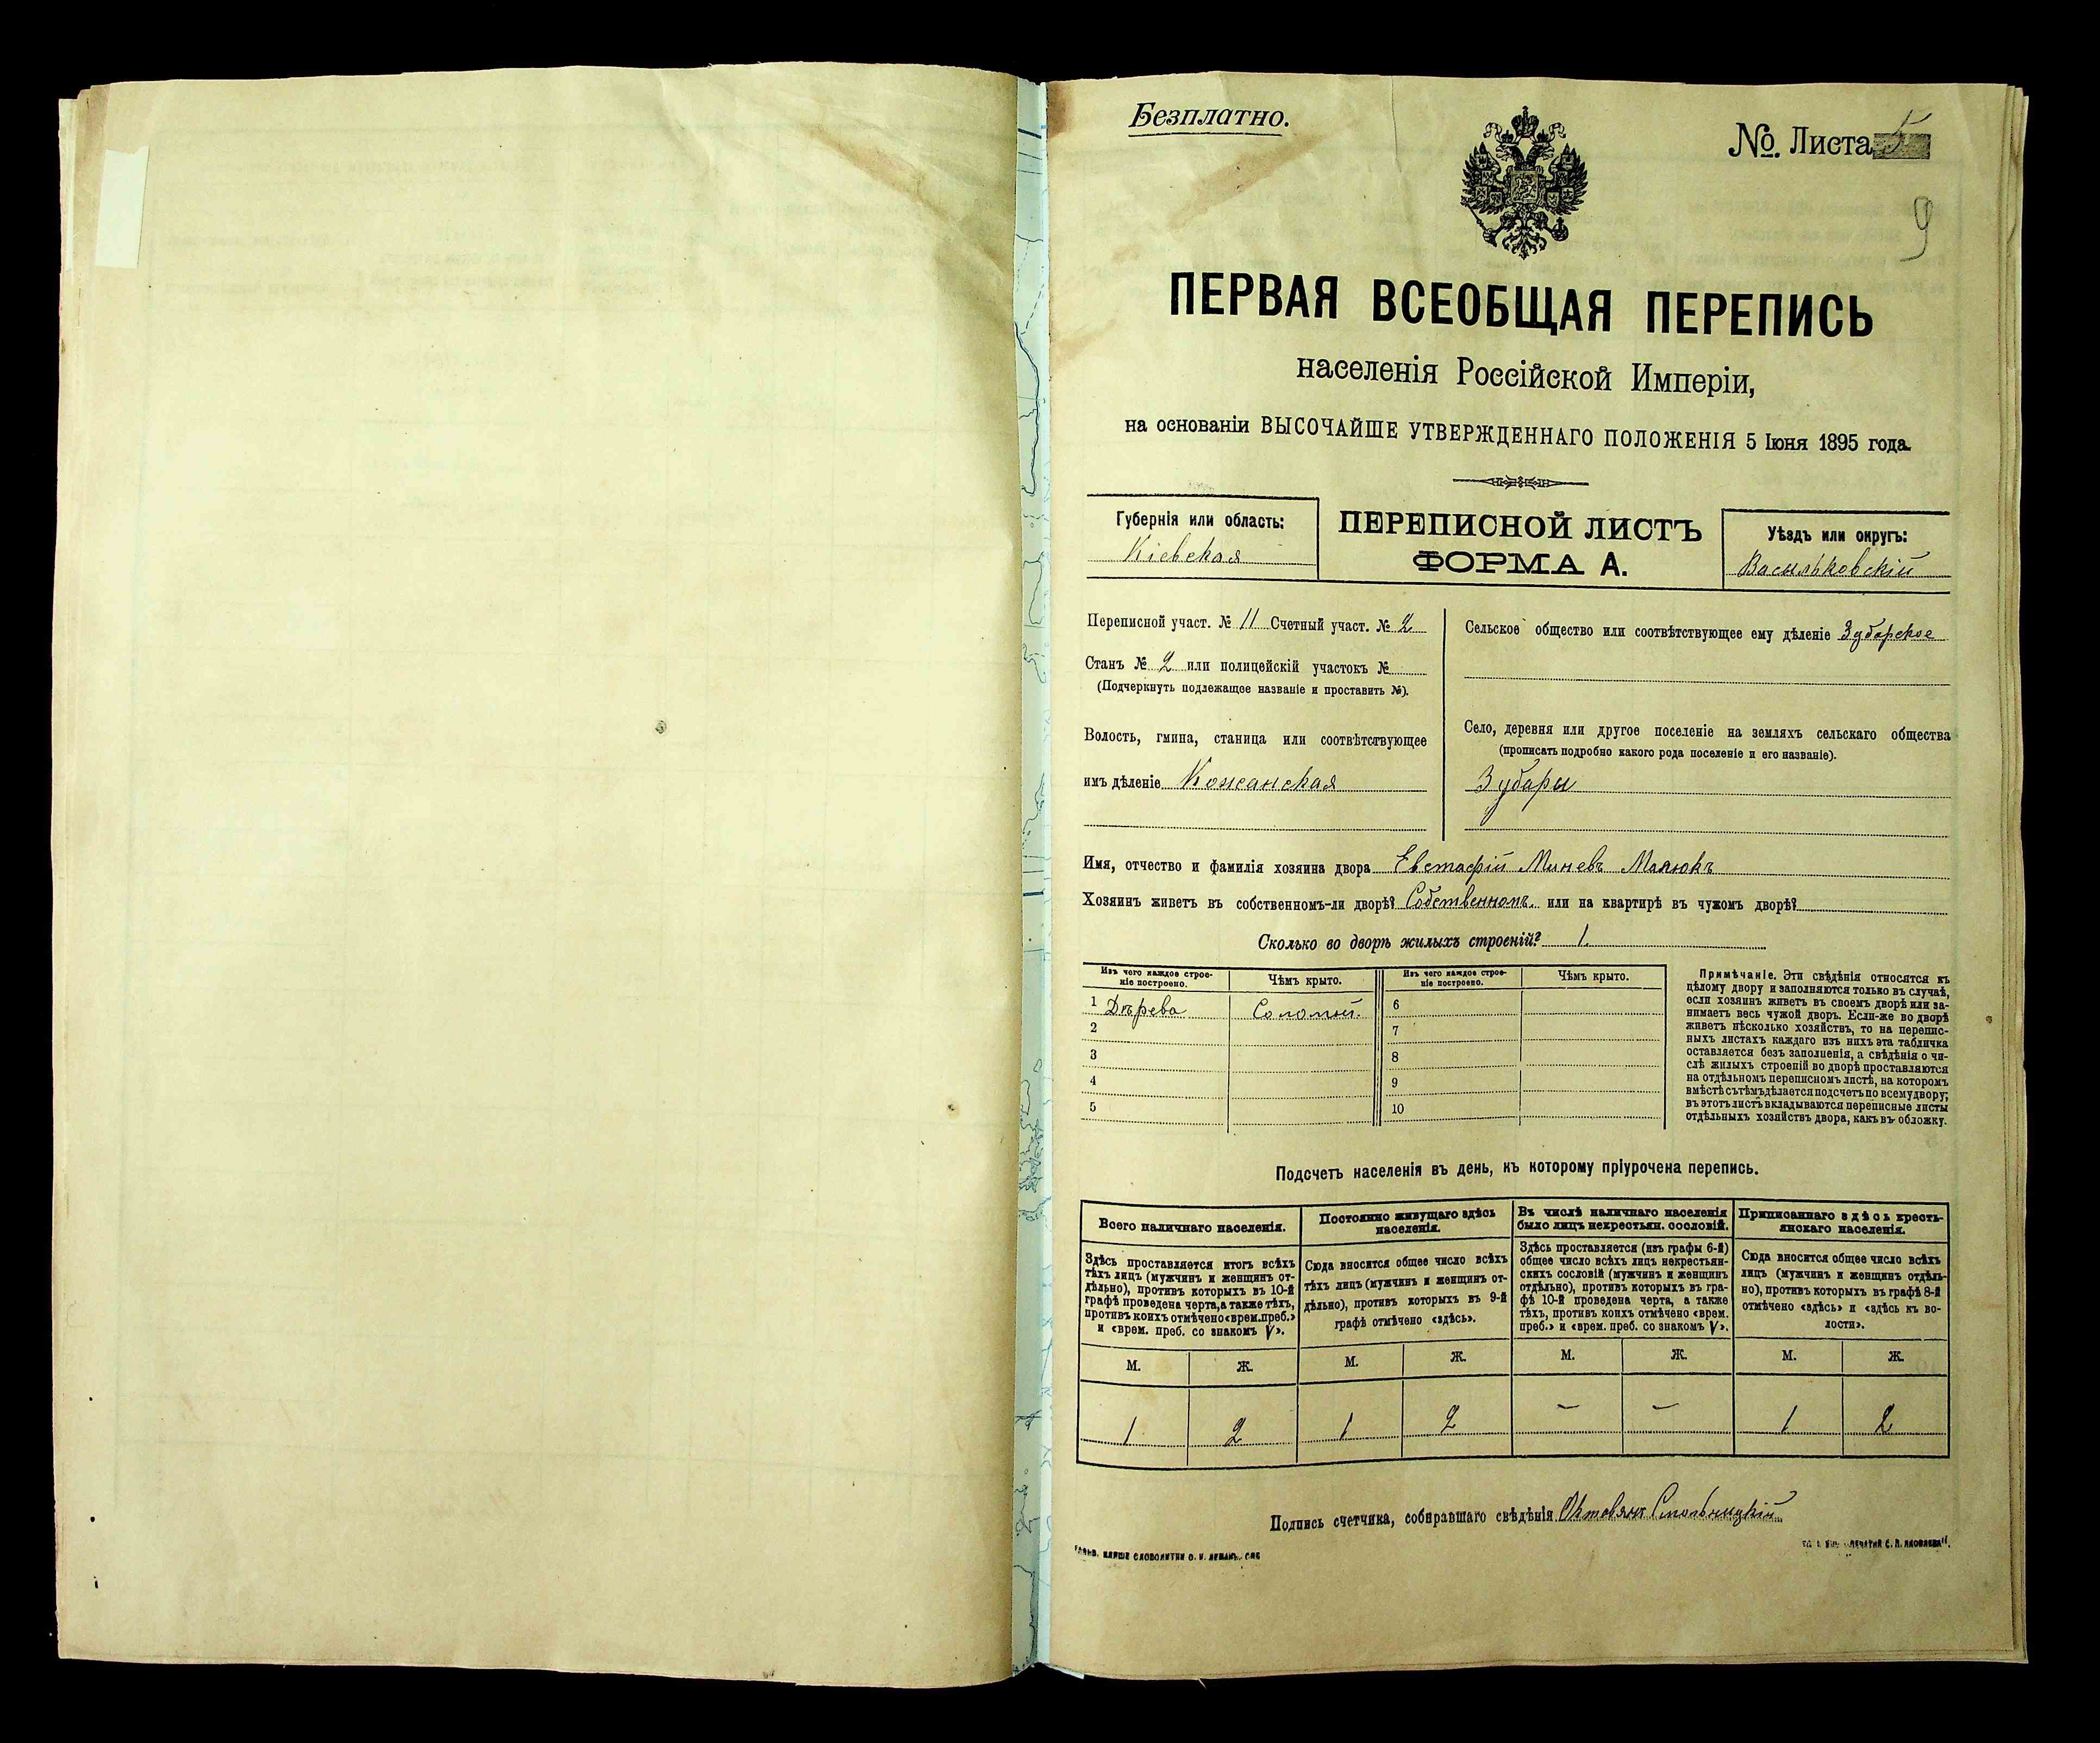 Безплатно.
№. Листа 5
9
ПЕРВАЯ ВСЕОБЩАЯ ПЕРЕПИСЬ
населенія Россійской Имперіи,
на основаніи ВЫСОЧАЙШЕ УТВЕРЖДЕННАГО ПОЛОЖЕНІЯ 5 Іюня 1895 года.
Губернія или область:
Кіевская
ПЕРЕПИСНОЙ ЛИСТЪ
ФОРМА А.
Уѣздъ или округъ:
Васильковскій
Переписной участ. № 11 Счетный участ. № 2
Станъ № 2 или полицейскій участокъ №
(Подчеркнуть подлежащее названіе и проставить №).
Волость, гмина, станица или соотвѣтствующее
имъ дѣленіе Кожанская
Сельское общество или соотвѣтствующее ему дѣленіе Зубарское
Село, деревня или другое поселеніе на земляхъ сельскаго общества
(прописать подробно какого рода поселеніе и его названіе).
Зубары
Имя, отчество и фамилія хозяина двора Евстафій Миневъ Малюкъ
Хозяинъ живетъ въ собственномъ-ли дворѣ? Собственномъ. или на квартирѣ въ чужомъ дворѣ?
Сколько во дворѣ жилыхъ строеній? 1.
Изъ чего каждое строе-
ніе построено.
Чѣмъ крыто.
Изъ чего каждое строе-
ніе построено.
Чѣмъ крыто.
1 Дѣрева Соломой. 6
2 7
3 8
4 9
5 10
Примѣчаніе. Эти свѣдѣнія относятся къ
цѣлому двору и заполняются только въ случаѣ,
если хозяинъ живетъ въ своемъ дворѣ или за-
нимаетъ весь чужой дворъ. Если-же во дворѣ
живетъ нѣсколько хозяйствъ, то на перепис-
ныхъ листахъ каждаго изъ нихъ эта табличка
оставляется безъ заполненія, а свѣдѣнія о чи-
слѣ жилыхъ строеній во дворѣ проставляются
на отдѣльномъ переписномъ листѣ, на которомъ
вмѣстѣ съ тѣмъ дѣлается подсчетъ по всему двору;
въ этотъ листъ вкладываются переписные листы
отдѣльныхъ хозяйствъ двора, какъ въ обложку.
Подсчетъ населенія въ день, къ которому пріурочена перепись.
Всего наличнаго населенія.
Здѣсь проставляется итогъ всѣхъ
тѣхъ лицъ (мужчинъ и женщинъ от-
дѣльно), противъ которыхъ въ 10-й
графѣ проведена черта, а также тѣхъ,
противъ коихъ отмѣчено «врем. преб.»
и «врем. преб. со знакомъ V».
Постоянно живущаго здѣсь
населенія.
Сюда вносится общее число всѣхъ
тѣхъ лицъ (мужчинъ и женщинъ от-
дѣльно), противъ которыхъ въ 9-й
графѣ отмѣчено «здѣсь».
Въ числѣ наличнаго населенія
было лицъ некрестьян. сословій.
Здѣсь проставляется (изъ графы 6-й)
общее число всѣхъ лицъ некрестьян-
скихъ сословій (мужчинъ и женщинъ
отдѣльно), противъ которыхъ въ гра-
фѣ 10-й проведена черта, а также
тѣхъ, противъ коихъ отмѣчено «врем.
преб.» и «врем. преб. со знакомъ V».
Приписаннаго здѣсь кресть-
янскаго населенія.
Сюда вносится общее число всѣхъ
лицъ (мужчинъ и женщинъ отдѣль-
но), противъ которыхъ въ графѣ 8-й
отмѣчено «здѣсь» и «здѣсь къ во-
лости».
М. Ж. М. Ж. М. Ж. М. Ж.
1 2 1 2 – – 1 2
Подпись счетчика, собиравшаго свѣдѣнія Октавянъ Смольницкій
КЛИШЕ СЛОВОЛИТНИ О. И. ЛЕМАНЪ. СПБ
ПЕЧАТНИ С. П. ЯКОВЛЕВА".